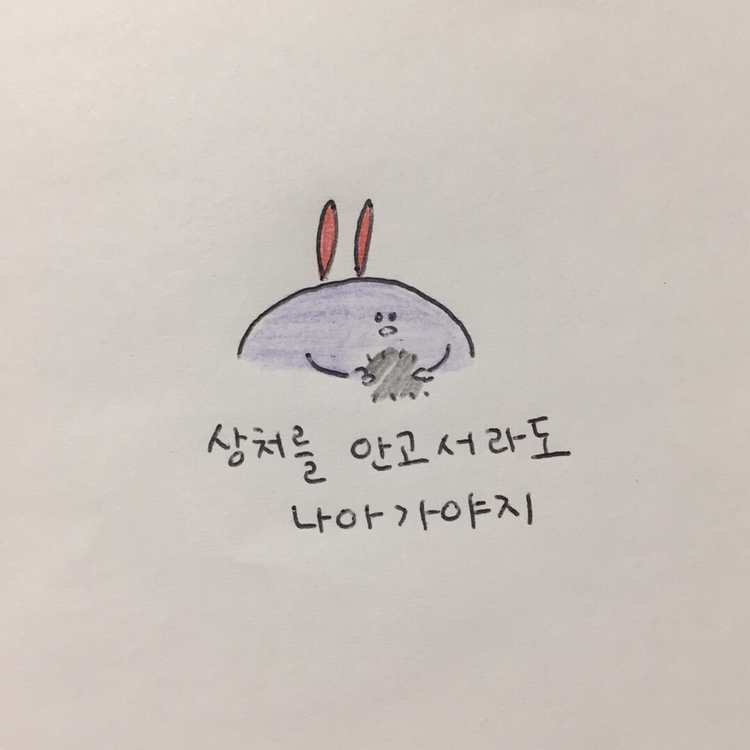 상처를 안고서라도
나아가야지